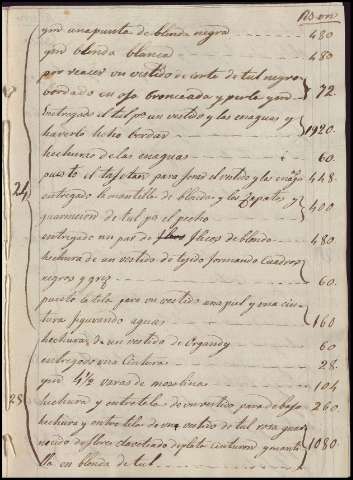 Rs on
yd una punta de blonda negra 480
yd blonda blanca 480
por reacer un vestido de corte de tul negro
bordado en oro bronceada y perla yd 72.
Entregado el tul pa un vestido y las enaguas y
haverlo hecho bordar 1920.
hechuras de las enaguas 60.
puesto el tafetan para forro el vestido y las enags 448
24 entregado la mantilla de blondas y los zapatos y
guarnicion de tul pa el pecho 400
entregado un par de flacos de blonda 480
hechura de un vestido de tejido formando cuadros
negros y gris 60.
puesto la tela para un vestido una piel y una cin-
tura figurando aguas 160
hechuras de un vestido de Organdy 60
entregado una Cintura 28.
yd 4 1/2 varas de moselina 104
25 hechura y entretela de un vestido para debajo 260
hechura y entretela de un vestido de tul rosa guar
necido de flores claveteado de plata cinturon y manti
lla en blonda de tul 1080